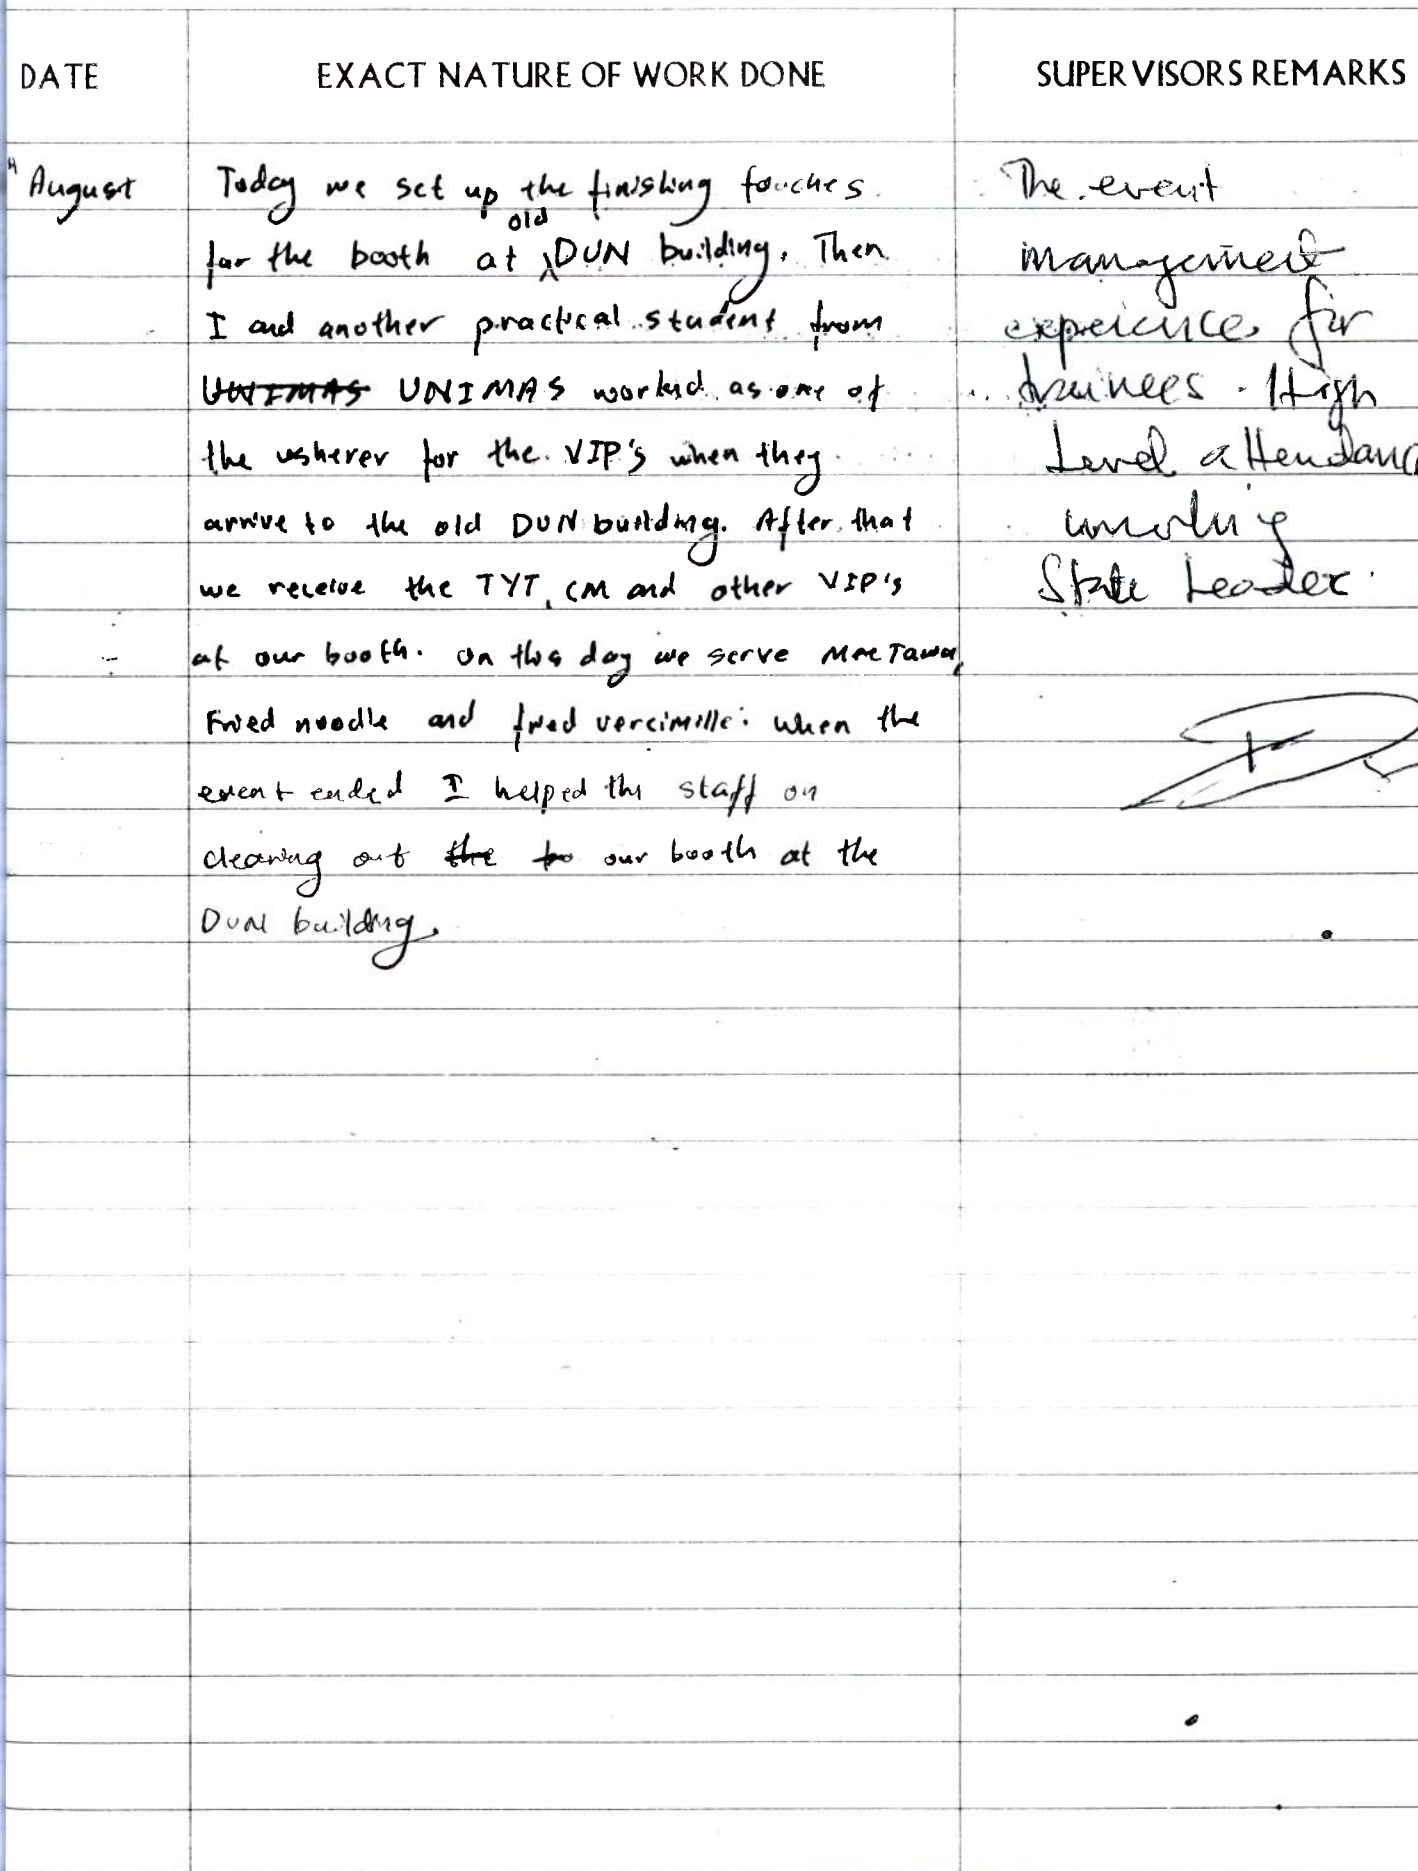 DATE EXACT NATURE OF WORK DONE SUPERVISORS REMARKS
August
Today we set up the finishing touches
for the booth at old DUN building. Then
I and another practical student from
UNIMAS UNIMAS worked as one of
the usherer for the VIP's when they
arrive to the old DUN building. After that
we receive the TYT, CM and other VIP's
at our booth. On this day we serve Mee
Fried noodle and fried vercimille. When the
event ended I helped the staff on
cleaning out the to our booth at the
DUN building.
The event
management
experience for
trainees. High
Level attendanc
involving
State Leader.